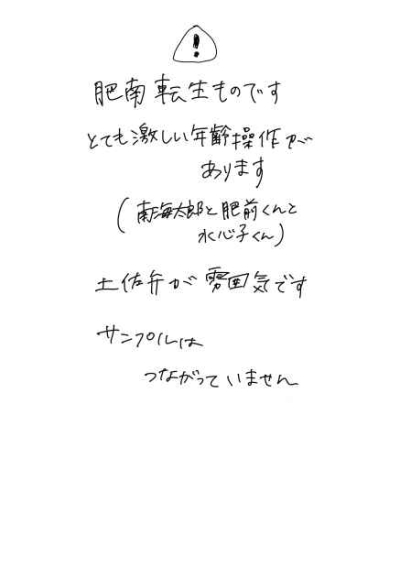 !
肥南転生ものです
とても激しい年齢操作が
あります
(南海太郎と肥前くんと
水心子くん)
土佐弁が雰囲気です
サンプルは
つながっていません